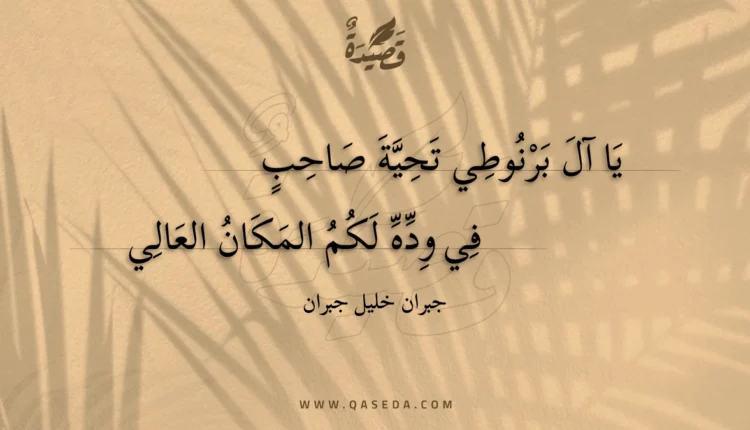 قَصِيدَةٌ
يَا آلَ بَرْنُوطِي تَحِيَّةَ صَاحِبٍ
فِي وِدِّهِّ لَكُمُ المَكَانُ العَالِي
جبران خليل جبران
WWW.QASEDA.COM